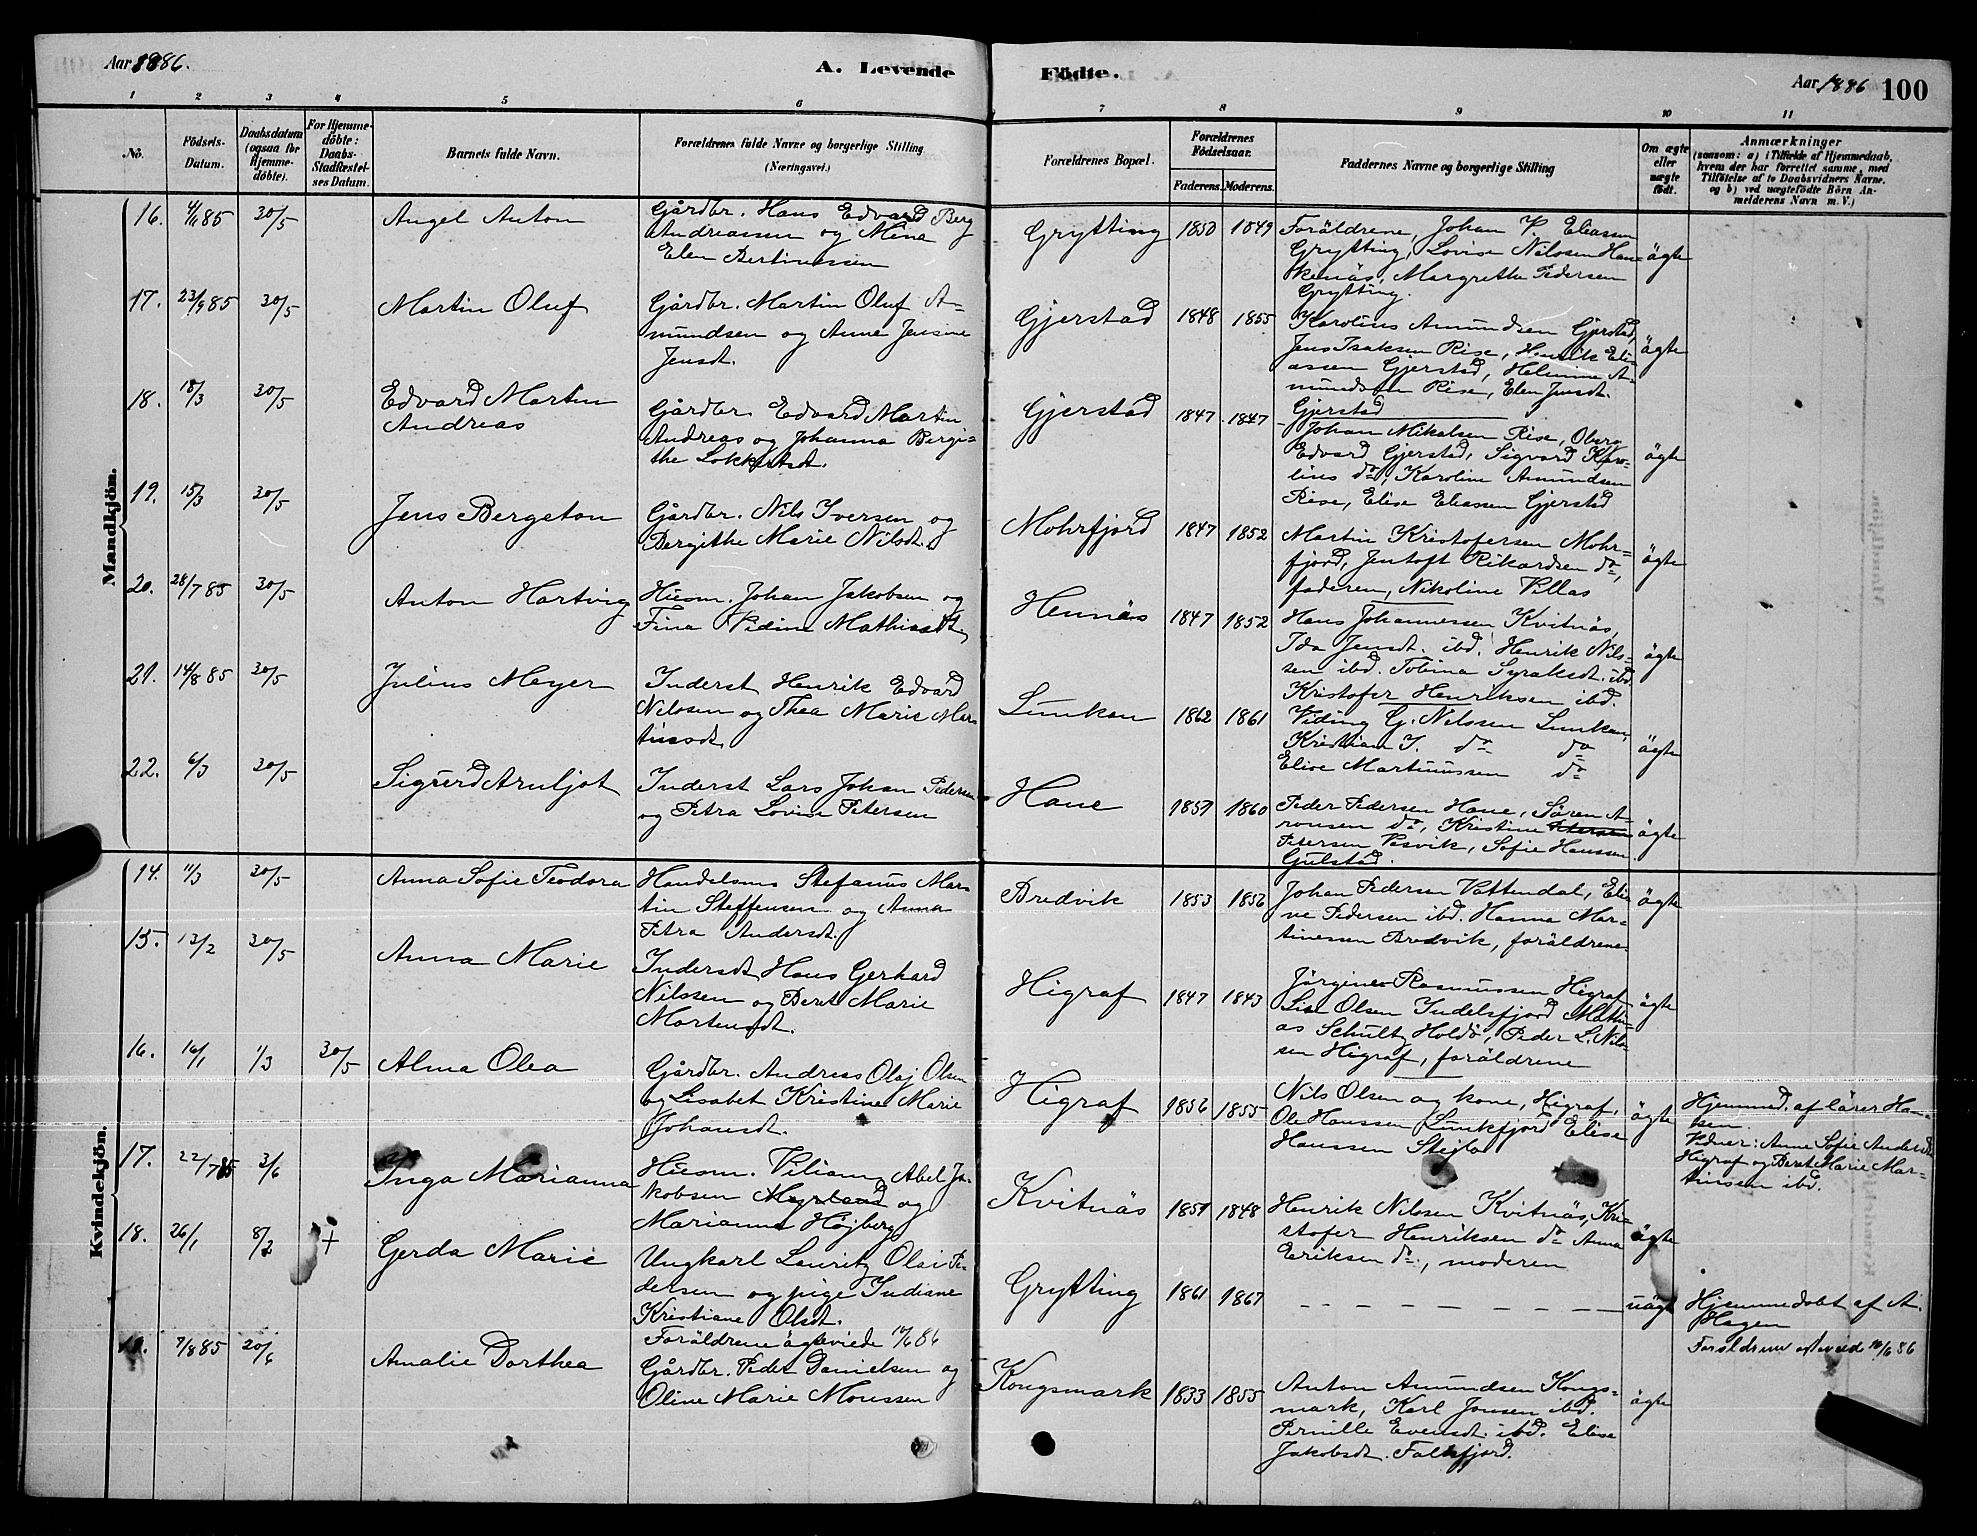 Aar 1886.
A. Levende
Födte.
Aar 1886
100
1 2 3 4 5 6 7 8 9 10 11
No.
Födsels-
Datum.
Daabsdatum
(ogsaa for
Hjemme-
döbte).
For Hjemme-
döbte:
Daabs-
Stadfæstel-
ses Datum.
Barnets fulde Navn.
Forældrenes fulde Navne og borgerlige Stilling
(Næringsvei.)
Forældrenes Bopæl.
Forældrenes
Födselsaar.
Faderens. Moderens.
Faddernes Navne og borgerlige Stilling
Om ægte
eller
uægte
födt.
Anmærkninger
(saasom: a) i Tilfælde af Hjemmedaab,
hvem der har forrettet samme, med
Tilföielse af to Daabsvidners Navne,
og b) ved uægtefödte Börn An-
melderens Navn m. V.)
Mandkjön.
16. 4/11 85 30/5 Angel Anton
Gårdbr. Hans Edvard Berg
Andreassen og Mina
Elen Bertinussen
Grytting 1850 1849
Foräldrene, Johan P Eleassen
Grytting, Lovise Nilssen Han-
kenäs, Margrethe Pedersen
Grytting.
ägte
17. 23/9 85 30/5 Martin Oluf
Gårdbr. Martin Oluf A-
mundsen og Anne Jensine
Jensdt.
Gjerstad 1848 1855
Karolius Amundsen Gjerstad,
Jens Isaksen Rise, Henrik Eli-
assen Gjerstad, Helmine A-
mundsen Rise, Elen Jensdt.
Gjerstad
ägte
18. 18/3 30/5 Edvard Martin
Andreas
Gårdbr. Edvard Martin
Andreas og Johanna Bergi-
the Lokkertsdt.
Gjerstad 1847 1847
Johan Mikalsen Rise,
Edvard Gjerstad, Sigvard Karo-
lius do, Karoline Amundsen
Rise, Elise Eliassen Gjerstad
ägte
19. 15/3 30/5 Jens Bergeton
Gårdbr. Nils Iversen og
Bergithe Marie Nilsdt.
Mohrfjord 1847 1852
Martin Kristofersen Mohr-
fjord, Jentoft Rikardsen do,
faderen, Nikoline Villas
ägte
20. 28/7 85 30/5 Anton Hartvig
Husm. Johan Jakobsen og
Fina Pedine Mathisdt.
Hennäs 1847 1852
Hans Johannessen Kvitnäs,
Ida Jensdt. ibd. Henrik Nils-
sen ibd. Tobina Syraksdt. ibd.
Kristofer Henriksen ibd.
ägte
21. 14/8 85 30/5 Julius Meyer
Inderst Henrik Edvard
Nilssen og Thea Marie Mar-
tinsdt
Lunkan 1862 1861
Viding G. Nilssen Lunkan,
Kristian J. do do
Elise Martinussen do
ägte
22. 6/3 30/5 Sigurd Arnljot
Inderst Lars Johan Pedersen
og Petra Lovise Petersen
Hane 1857 1860
Peder Pedersen Hane, Sören A-
ronsen do, Kristine Petersen
Petersen Vasvik, Sofie Hanssen
Gulstad.
ägte
Kvindekjön.
14. 11/3 30/5 Anna Sofie Teodora
Handelsms Stefanus Mar-
tin Steffensen og Anna
Petra Andersdt.
Bredvik 1853 1856
Johan Pedersen Vattendal, Eli-
ne Pedersen ibd. Hanna Mar-
tinessen Bredvik, foräldrene
ägte
15. 13/2 30/5 Anna Marie
Inderst Hans Gerhard
Nilssen og Beret Marie
Mortensdt.
Higraf 1847 1843
Jörginer Rasmussen Higraf
Lise Olsen Indelsfjord Mathi-
as Schultz Holdö, Peder L. Nils-
sen Higraf, foräldrene
ägte
16. 16/1 1/3 30/5 Alma Olea
Gårdbr. Andreas Olaj Olsen
og Lisabet Kristine Marie
Johansdt.
Higraf 1856 1855
Nils Olsen og kone, Higraf,
Ole Hanssen Lunkfjord Elise
Hanssen Stejlo
ägte
Hjemmed. af lärer Han-
sen.
Vidner: Anne Sofie Andersdt
Higraf og Beret Marie Mar-
tinsen ibd.
17. 22/7 85 3/6 Inga Marianna
Husm. Viliam Abel Ja-
kobsen Myrland og
Marianna Höjberg
Kvitnäs 1857 1848
Henrik Nilssen Kvitnäs, Kri-
stofer Henriksen do Anna
Eriksen do, moderen
ägte
18. 26/1 8/2 + Gerda Marie
Ungkarl Lauritz Olai Pe-
dersen og pige Indiane
Kristiane Olsdt.
Foräldrene ägteviede 10/6 86
Grytting 1861 1867
uägt
Hjemmedöbt af A.
Hagen
Foräldrene ägteviede 10/6 86
19. 7/8 85 20/6 Amalie Dorthea
Gårdbr. Peder Danielsen og
Oline Marie Monssen
Kongsmark 1833 1855
Anton Amundsen Kongs-
mark, Karl Jonsen ibd.
Pernille Evensdt. ibd. Elise
Jakobsdt. Falkfjord.
ägte